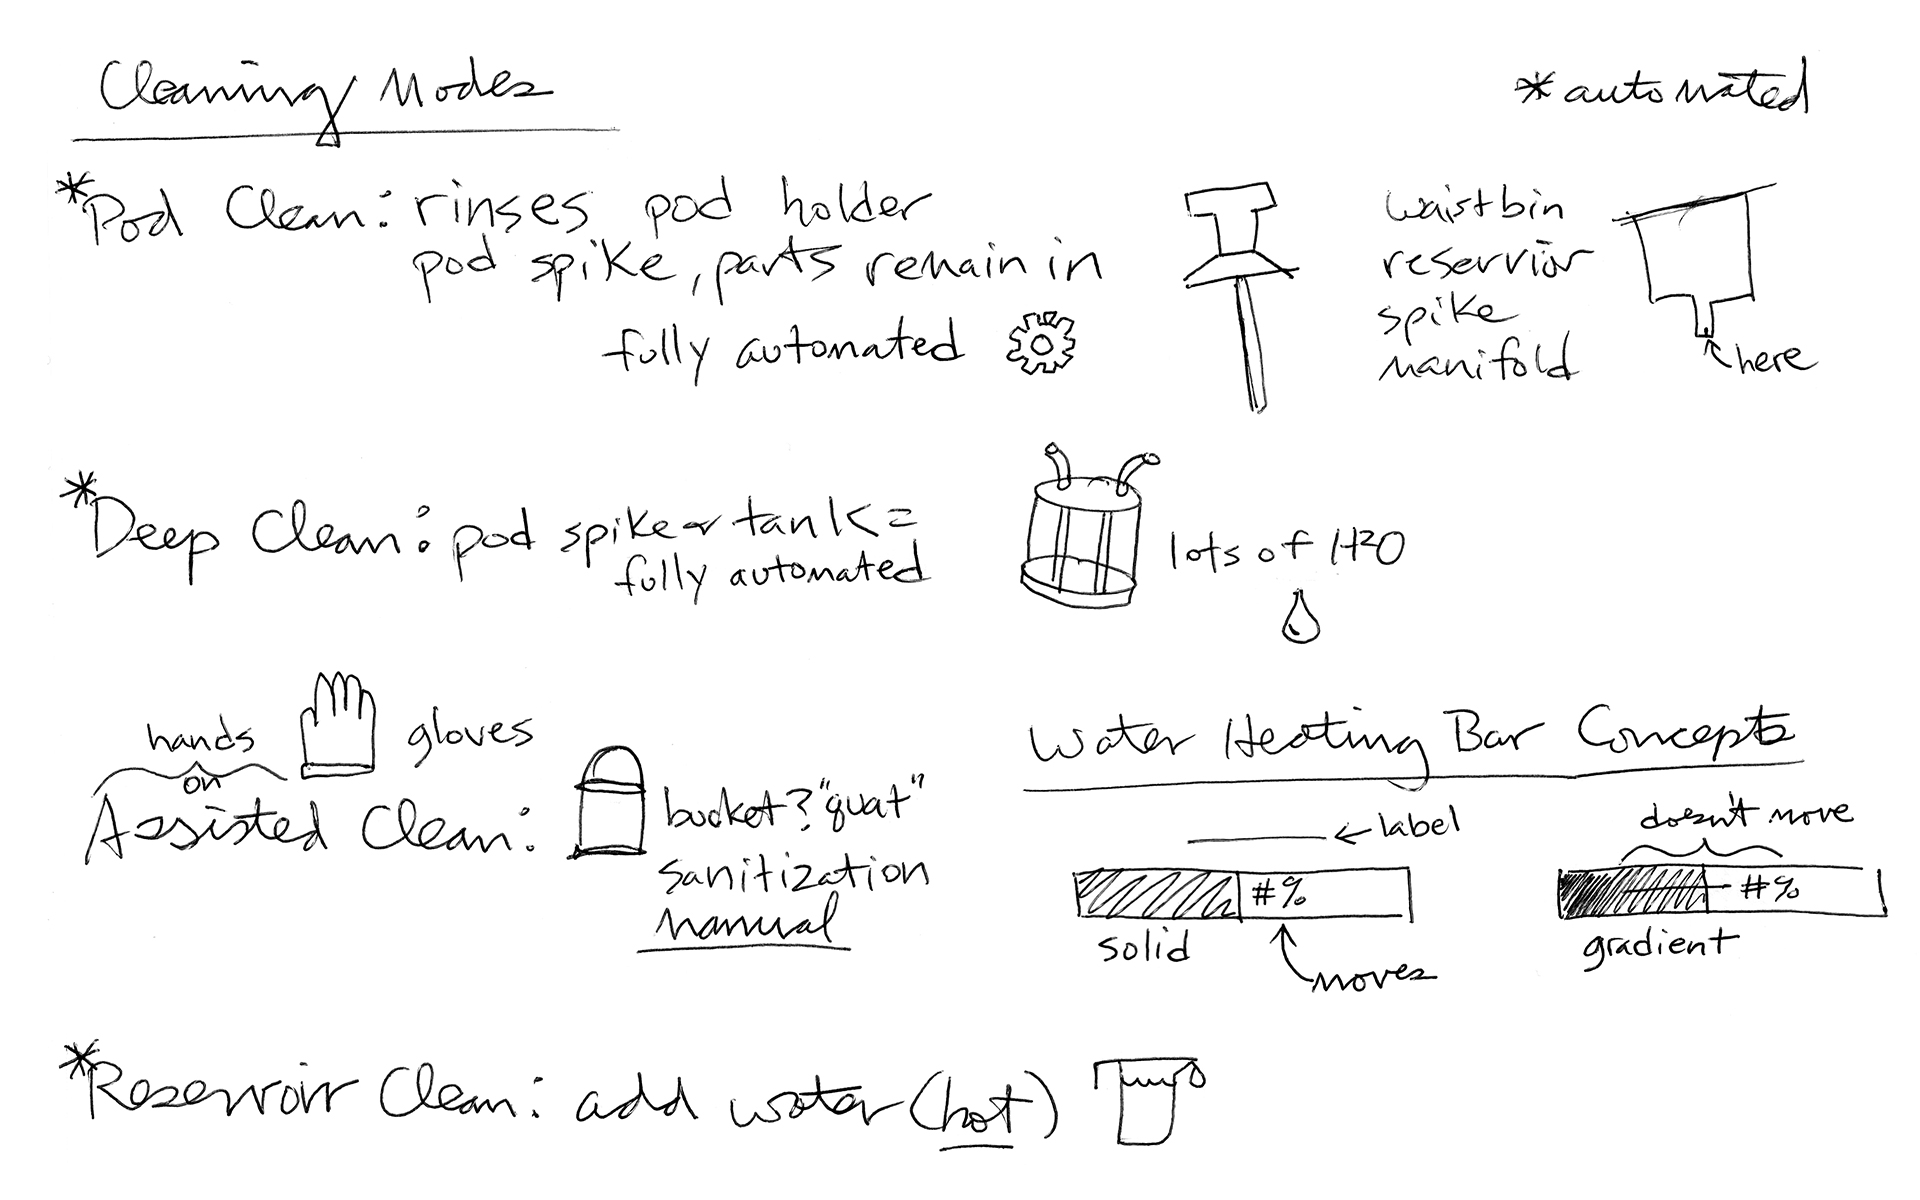 Cleaning Modes
*automated
*Pod Clean: rinses pod holder
pod spike, parts remain in
fully automated
waistbin
reservior
spike
manifold
here
*Deep Clean: pod spike or tank =
fully automated
lots of H2O
hands
on
gloves
Assisted Clean:
bucket? "quat"
sanitization
manual
Water Heating Bar Concepts
label
#%
solid
moves
doesn't move
#%
gradient
*Reservoir Clean: add water (hot)